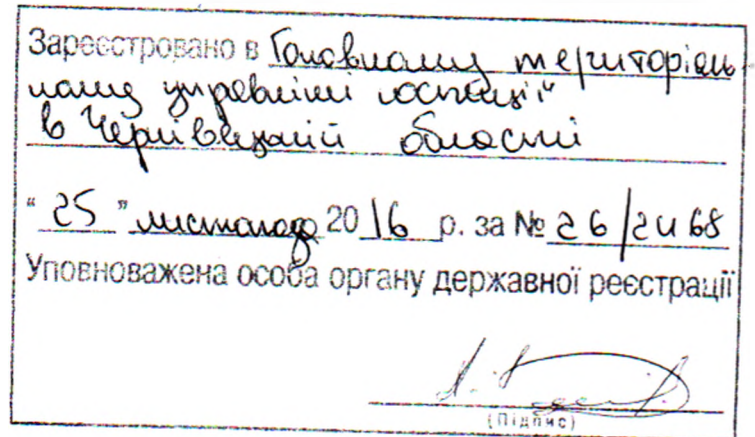 Зареєстровано в Головному територіаль-
ному управлінні юстиції
в Чернівецькій області
"25" листопада 2016 р. за № 26/2468
Уповноважена особа органу державної реєстрації
(підпис)